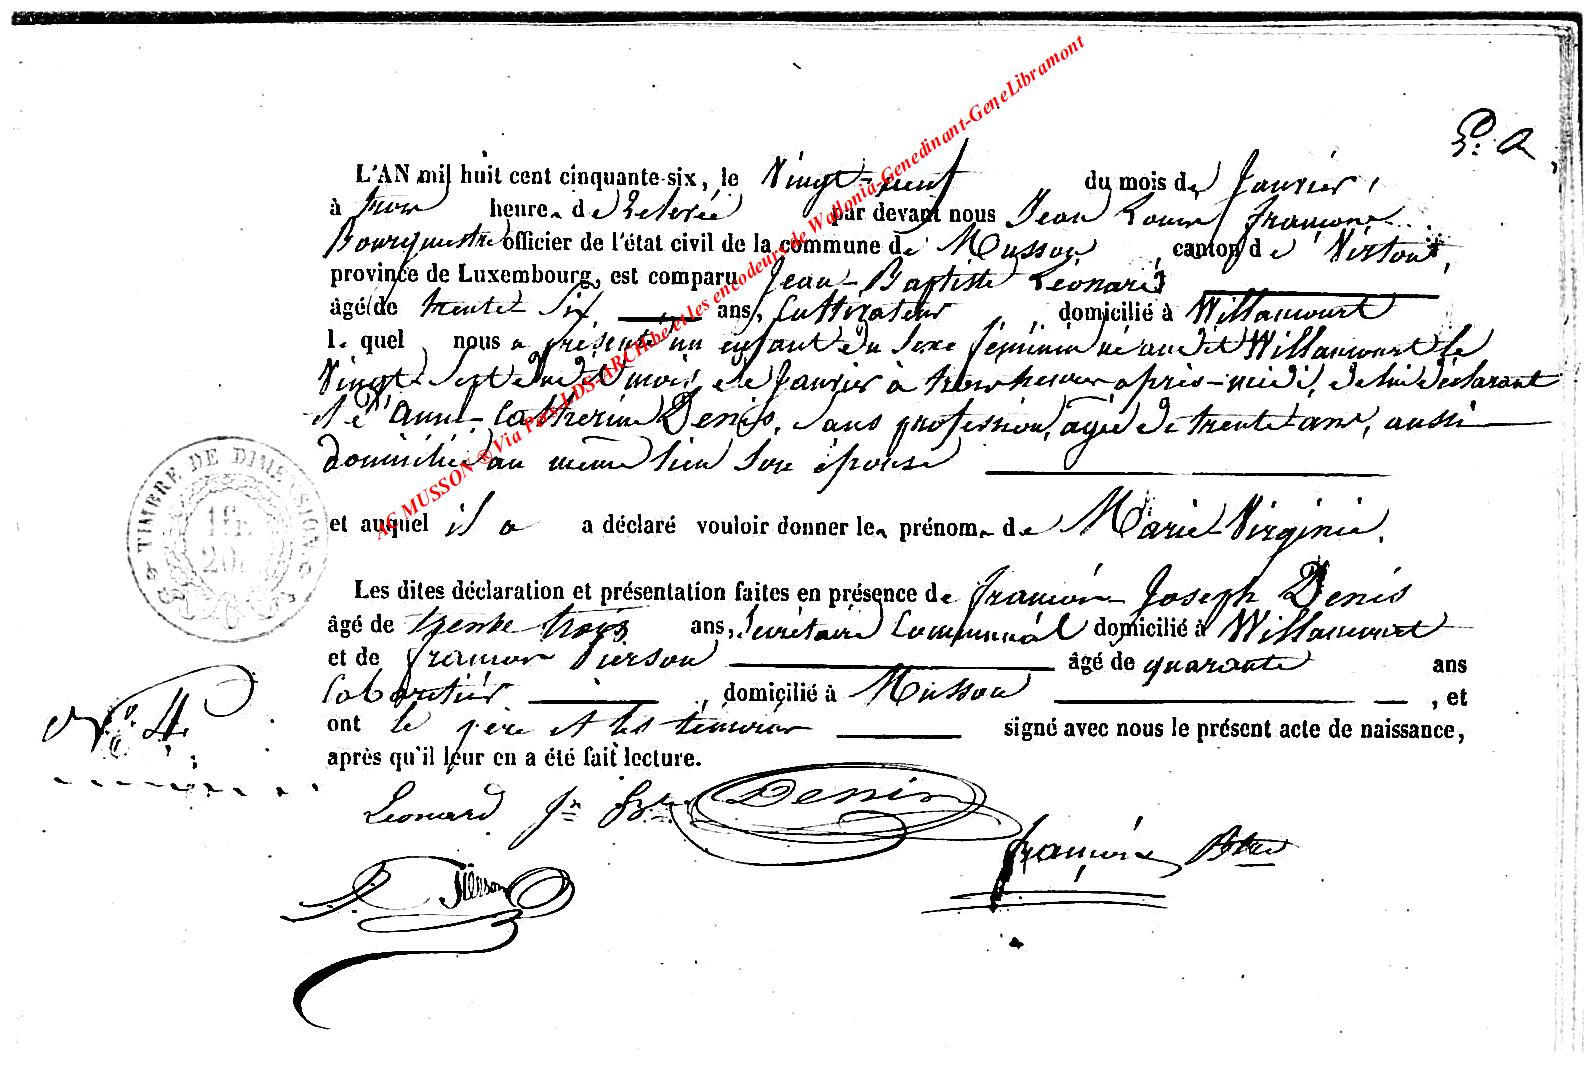 P. A
L'AN mil huit cent cinquante-six, le Vingt-neuf du mois de Janvier,
à trois heures de relevée par devant nous Jean Louis François
Bourguemestre officier de l'état civil de la commune de Musson, canton de Virton,
province de Luxembourg, est comparu Jean-Baptiste Léonard
âgé de trente six ans, Cultivateur domicilié à Willancourt
lequel nous a présenté un enfant du sexe féminin né audit Willancourt le
Vingt-sept dudit mois de Janvier à trois heures après-midi, de lui déclarant
et d'Anne-Catherine Denis, sans profession, agée de trente ans, aussi
domiciliée au même lieu son épouse
et auquel il a a déclaré vouloir donner les prénoms de Marie-Virginie.
Les dites déclaration et présentation faites en présence de François Joseph Denis
âgé de trente trois ans, Secrétaire Communal domicilié à Willancourt
et de François Pierson âgé de quarante ans
Cabaretier, domicilié à Musson, et
ont le père et les témoins signé avec nous le présent acte de naissance,
après qu'il leur en a été fait lecture.
N° 4.
TIMBRE DE DIMENSION
1 fr.
20
Leonard Jn Bte Denis
François Btre
Pierson
AC MUSSON ® Via Pass-LDS-ARCH.be et les encodeurs de Wallonia-Genedinant-GeneLibramont